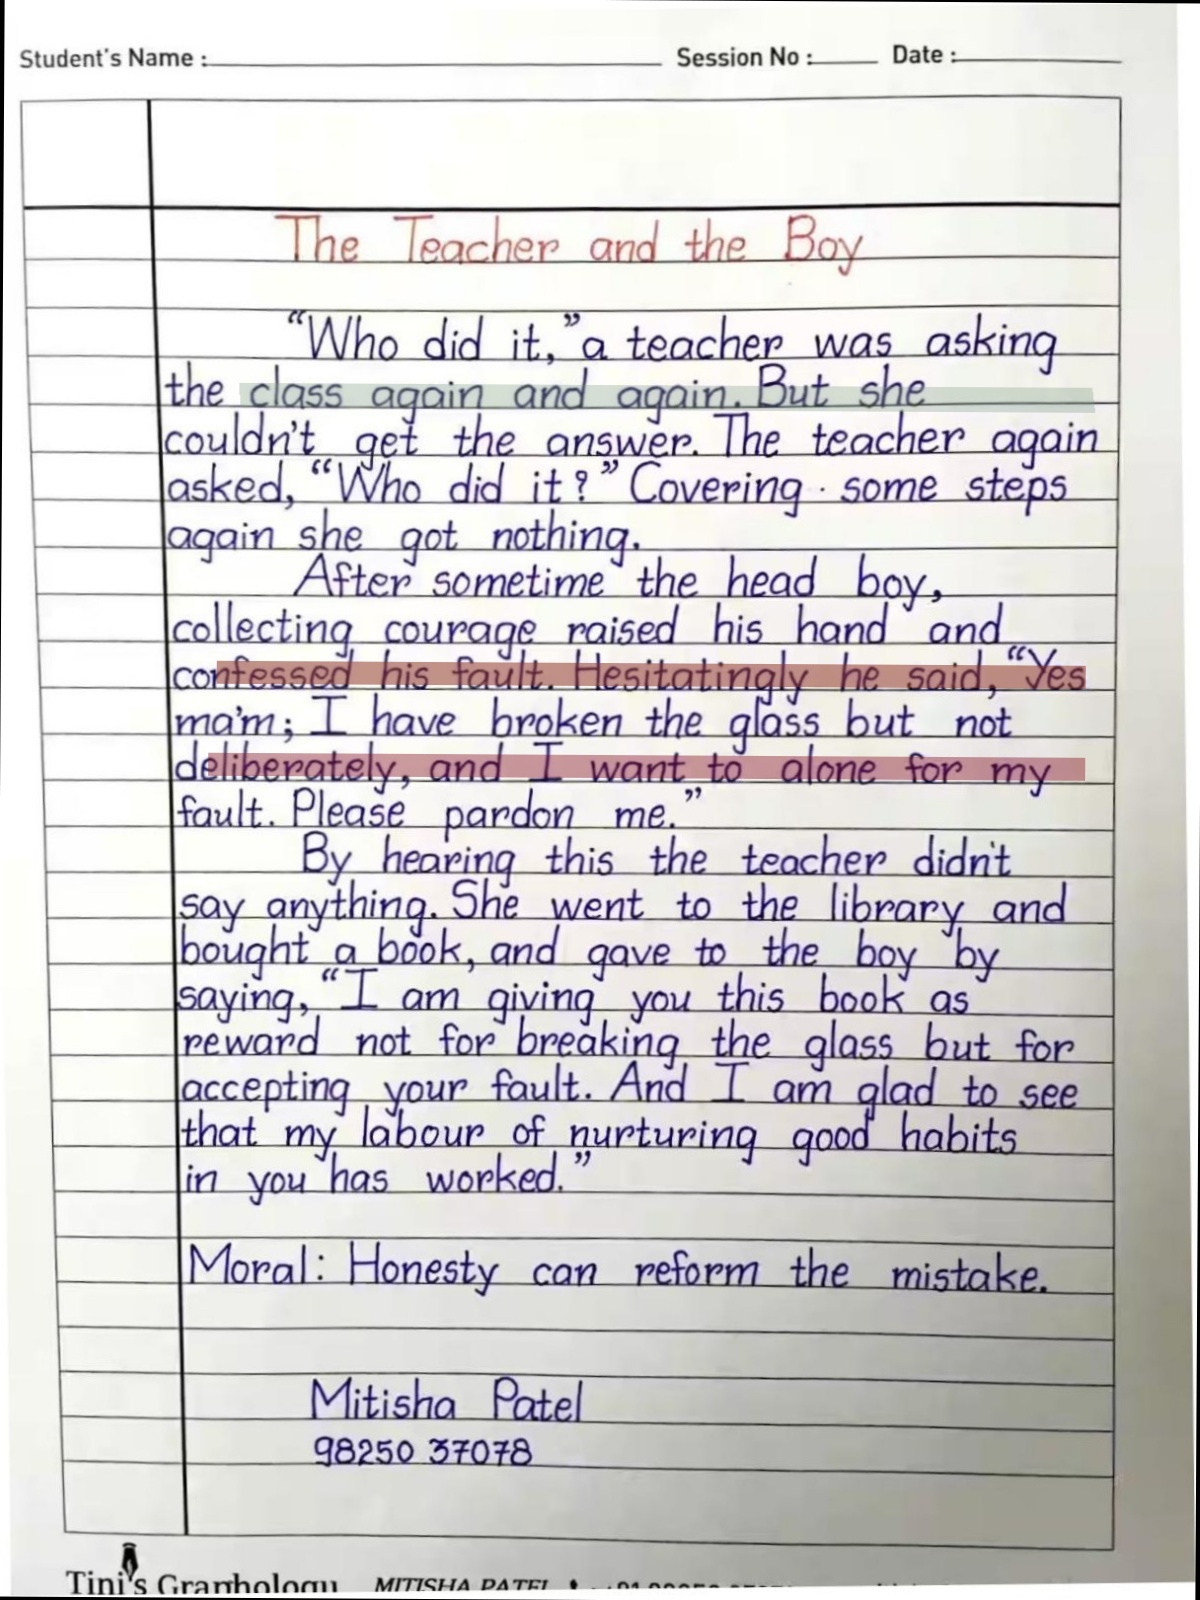 Student's Name : Session No : Date :
The Teacher and the Boy
“Who did it,” a teacher was asking
the class again and again. But she
couldn't get the answer. The teacher again
asked, “Who did it?” Covering · some steps
again she got nothing.
After sometime the head boy,
collecting courage raised his hand and
confessed his fault. Hesitatingly he said, “Yes
ma'm; I have broken the glass but not
deliberately, and I want to alone for my
fault. Please pardon me.”
By hearing this the teacher didn't
say anything. She went to the library and
bought a book, and gave to the boy by
saying, “I am giving you this book as
reward not for breaking the glass but for
accepting your fault. And I am glad to see
that my labour of nurturing good habits
in you has worked.”
Moral: Honesty can reform the mistake.
Mitisha Patel
98250 37078
Tini's Graphology MITISHA PATEL